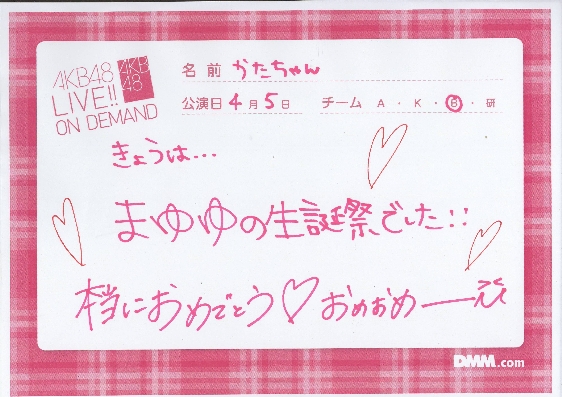 AKB48
LIVE!!
ON DEMAND
AKB
48
名前 かたちゃん
公演日 4月5日 チーム A・K・B・研
きょうは...
まゆゆの生誕祭でした::
本当におめでとう♡おめおめー
DMM.com